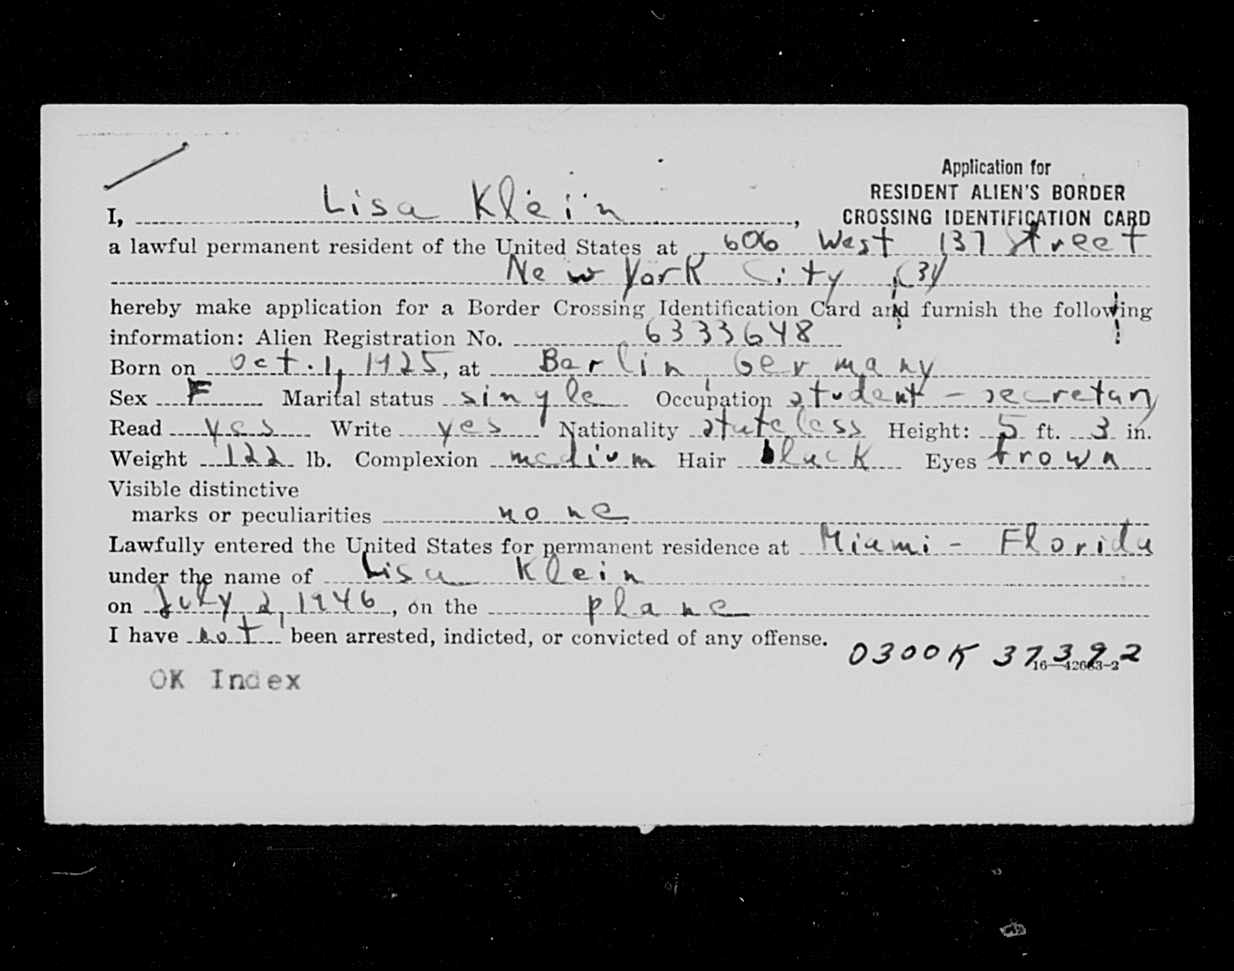 Application for
RESIDENT ALIEN'S BORDER
CROSSING IDENTIFICATION CARD
I, Lisa Klein,
a lawful permanent resident of the United States at 606 West 137 Street
New York City (31)
hereby make application for a Border Crossing Identification Card and furnish the following
information: Alien Registration No. 6333648
Born on Oct. 1, 1925, at Berlin Germany
Sex F Marital status single Occupation student - secretary
Read yes Write yes Nationality stateless Height: 5 ft. 3 in.
Weight 122 lb. Complexion medium Hair black Eyes brown
Visible distinctive
marks or peculiarities none
Lawfully entered the United States for permanent residence at Miami - Florida
under the name of Lisa Klein
on July 2, 1946, on the plane
I have not been arrested, indicted, or convicted of any offense.
0300K 37392
OK Index